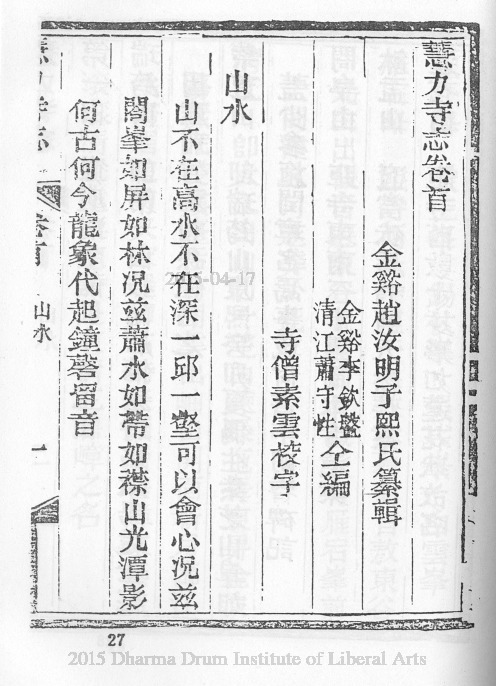 慧力寺志卷首
金谿趙汝明子熙氏纂輯
金谿李欽盤
清江蕭守性
仝編
寺僧素雲校字
山水
山不在高水不在深一邱一壑可以會心況玆
閤峯如屏如林況玆蕭水如帶如襟山光潭影
何古何今龍象代起鐘磬留音
慧力寺志
卷首
山水
一
27
2015-04-17
2015 Dharma Drum Institute of Liberal Arts